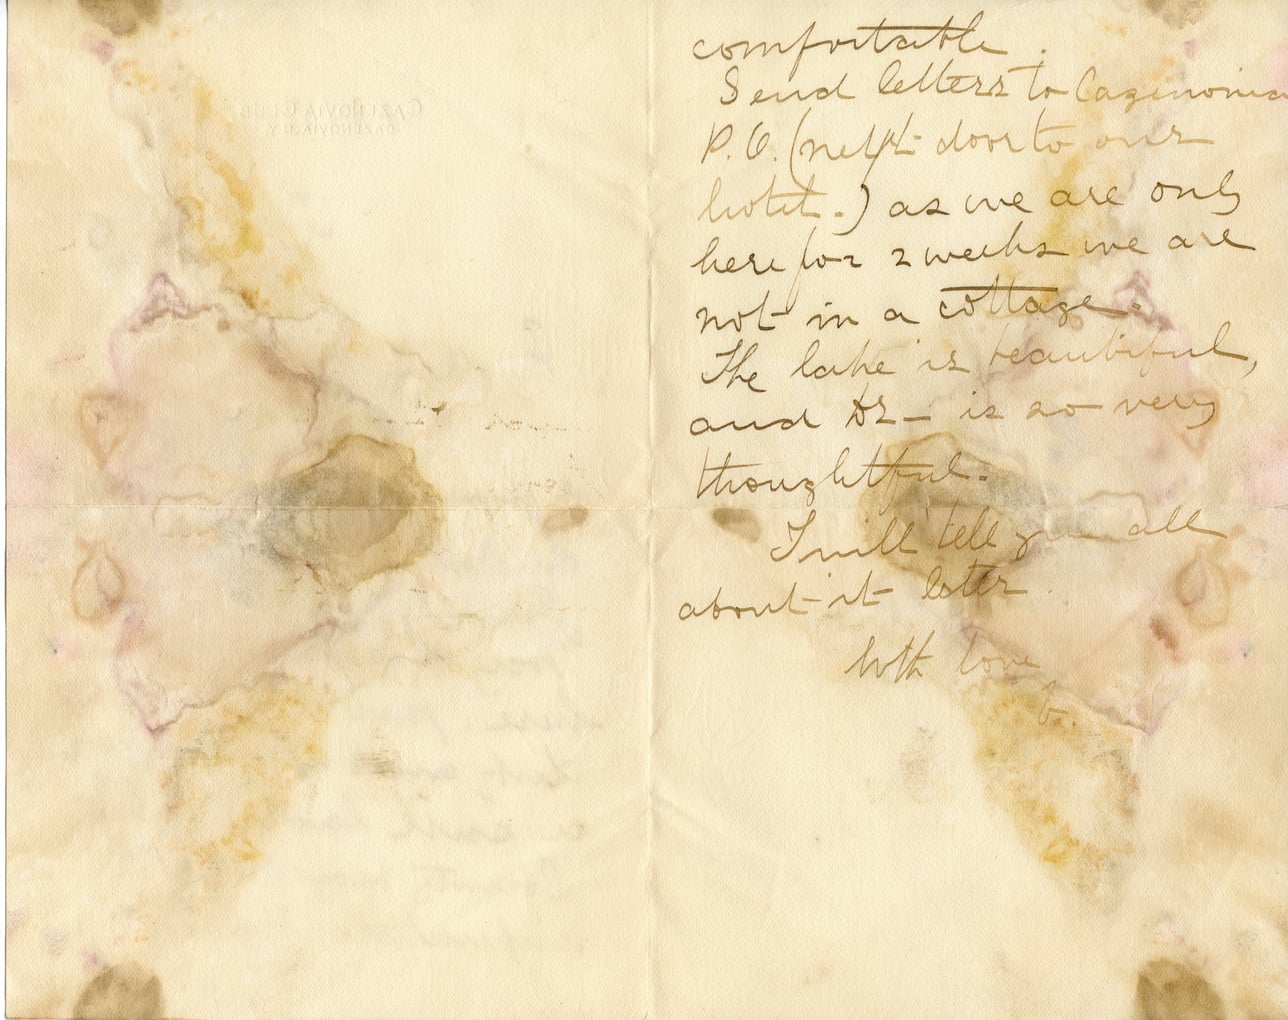 CAZENOVIA CLUB
CAZENOVIA, N.Y.
comfortable.
Send letters to Cazinonia
P.O. (next door to our
hotel.) as we are only
here for 2 weeks we are
not in a cottage.
The lake is beautiful,
and Dr — is so very
thoughtful.
I will tell you all
about it later
With love
b.